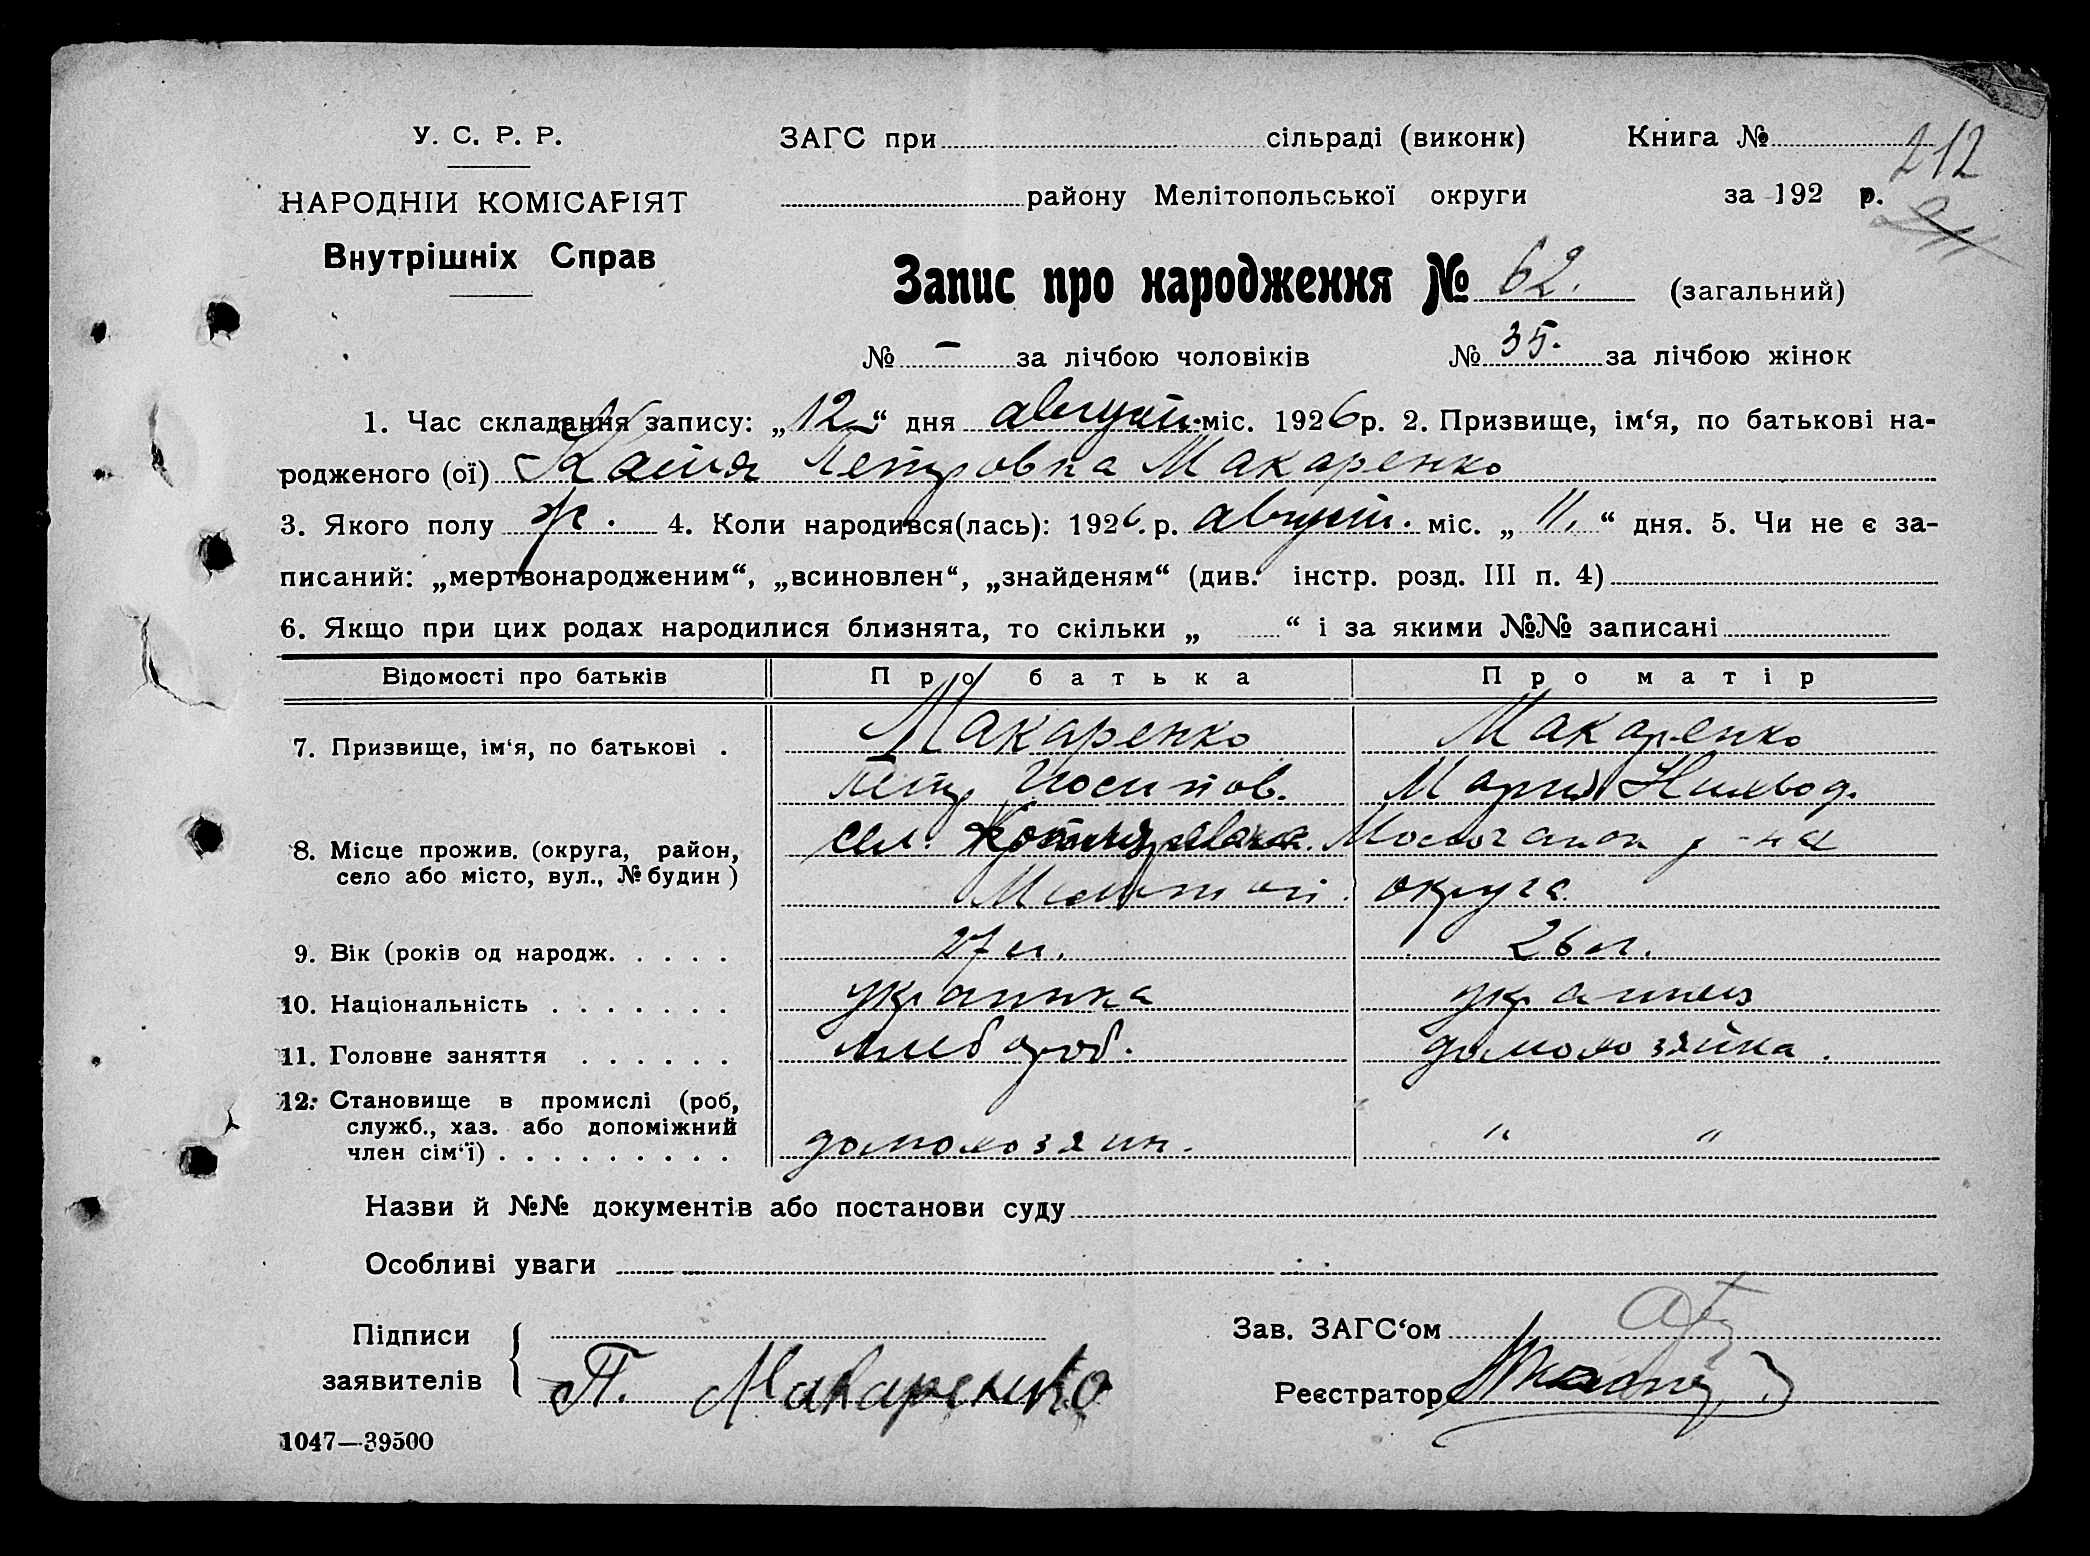 У. С. Р. Р.
НАРОДНІЙ КОМІСАРІЯТ
Внутрішніх Справ
ЗАГС при сільраді (виконк) Книга №
212
району Мелітопольської округи за 192 р.
Запис про народження № 62. (загальний)
№ — за лічбою чоловіків № 35. за лічбою жінок
1. Час складання запису: „12“ дня август міс. 1926 р. 2. Призвище, ім‘я, по батькові на-
родженого (ої) Катя Петровна Макаренко
3. Якого полу ж. 4. Коли народився(лась): 1926. р. август. міс. „11.“ дня. 5. Чи не є за-
писаний: „мертвонародженим“, „всиновлен“, „знайденям“ (див. інстр. розд. III п. 4)
6. Якщо при цих родах народилися близнята, то скільки „ “ і за якими №№ записані
Відомості про батьків Про батька Про матір
7. Призвище, ім‘я, по батькові . Макаренко Макаренко
Петр Иосипов. Мария
8. Місце прожив. (округа, район, сел. р-на
село або місто, вул., № будин) Мелитоп. округа.
9. Вік (років од народж. . . . . 27 л. 26 л.
10. Національність . . . . . . . украинка украинец
11. Головне заняття . . . . . . хлебороб. домохозяйка.
12. Становище в промислі (роб,
служб., хаз. або допоміжний
член сім‘ї) . . . . . . . . . домохозяин. " "
Назви й №№ документів або постанови суду
Особливі уваги
Підписи
заявителів П. Макаренко
Зав. ЗАГС‘ом
Реєстратор
1047—39500